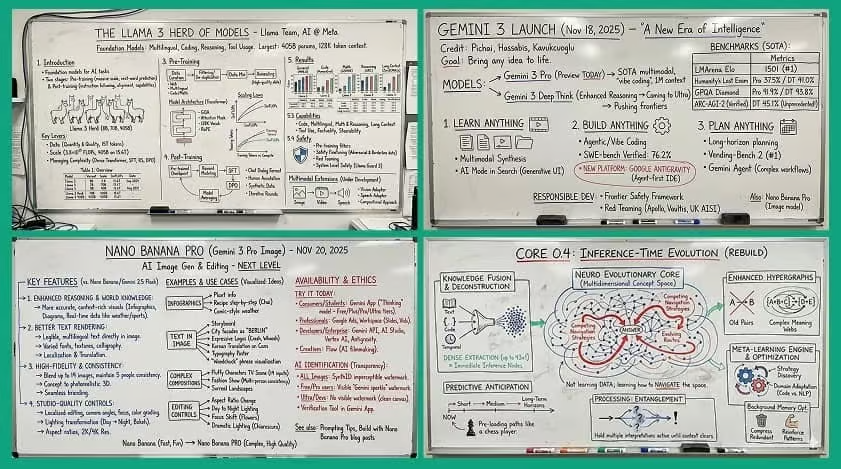 THE LLAMA 3 HERD OF MODELS - Llama Team, AI @ Meta.
Foundation Models: Multilingual, Coding, Reasoning, Tool Usage. Largest: 405B params, 128K token context.
1. Introduction
• Foundation models for AI tasks
• Two stages: Pre-training (massive scale, next-word prediction)
& Post-training (instruction following, alignment, capabilities)
Llama 3 Herd (8B, 70B, 405B)
Key Levers
• Data (Quantity & Quality, 15T tokens)
• Managing Complexity (Dense Transformer, SFT, RS, DPO)
Table 1: Overview
3. Pre-Training
Data Curation
• Web
• Code/Math
Data Mix
Annealing
Model Architecture (Transformer)
• GQA
• Attention Mask
• 128K Vocab
• RoPE
Scaling Laws
4. Post-Training
Pre-trained Checkpoint
Reward Modeling
SFT
DPO
Model Averaging
• Chat Dialog Format
• Human Annotation
• Synthetic Data
• Iterative Rounds
5. Results
5.3 Capabilities
• Code, Multilingual, Math & Reasoning, Long Context,
Tool Use, Factuality, Steerability
5.4 Safety
• Pre-training Filters
• Safety Finetuning (Adversarial & Borderline data)
• Red Teaming
• System Level Safety (Llama Guard 3)
Multimodal Extensions (Under Development)
Image
Video
Speech
• Vision Adapter
• Speech Adapter
• Compositional Approach
GEMINI 3 LAUNCH (Nov 18, 2025) – "A New Era of Intelligence"
Credit: Pichai, Hassabis, Kavukcuoglu
Goal: Bring any idea to life.
MODELS:
Gemini 3 Pro (Preview TODAY) → SOTA multimodal,
"vibe coding", 1M context
Gemini 3 Deep Think (Enhanced Reasoning → Coming to Ultra)
→ Pushing frontiers
BENCHMARKS (SOTA):
Metrics
LMArena Elo 1501 (#1)
Humanity's Last Exam Pro 37.5% / DT 41.0%
GPQA Diamond Pro 91.9% / DT 93.8%
ARC-AGI-2 (Verified) DT 45.1% (Unprecedented!)
1. LEARN ANYTHING
• Multimodal Synthesis
• AI Mode in Search (Generative UI)
2. BUILD ANYTHING
• Agentic/Vibe Coding
• SWE-bench Verified: 76.2%
• NEW PLATFORM: GOOGLE ANTIGRAVITY
(Agent-first IDE)
3. PLAN ANYTHING
• Long-horizon planning
• Vending-Bench 2 (#1)
• Gemini Agent (Complex workflows)
RESPONSIBLE DEV: • Frontier Safety Framework
• Red Teaming (Apollo, Vaultis, UK AISI)
Also: Nano Banana Pro
(Image model)
NANO BANANA PRO (Gemini 3 Pro Image) - NOV 20, 2025
AI Image Gen & Editing - NEXT LEVEL
KEY FEATURES (vs. Nano Banana/Gemini 2.5 Flash)
1. ENHANCED REASONING & WORLD KNOWLEDGE:
• More accurate, context-rich visuals (Infographics,
Diagrams, Real-time data like weather/sports).
2. BETTER TEXT RENDERING:
• Legible, multilingual text directly in image.
• Varied fonts, textures, calligraphy.
• Localization & Translation.
3. HIGH-FIDELITY & CONSISTENCY:
• Blend up to 14 images, maintain 5 people consistency.
• Concept to photorealistic 3D.
• Seamless branding.
4. STUDIO-QUALITY CONTROLS:
• Localized editing, camera angles, focus, color grading.
• Lighting transformation (Day → Night, Bokeh).
• Aspect ratios, 2K/4K Res.
EXAMPLES & USE CASES (Visualized Ideas)
INFOGRAPHICS
• Plant info
• Recipe step-by-step (Chai)
• Comic-style weather
TEXT IN IMAGE
• Storyboard
• City Facades as "BERLIN"
• Korean Translation on Cans
• Typography Poster
• "Woodchuck" phrase visualization
COMPLEX COMPOSITIONS
• Fluffy Characters TV Scene (14 inputs)
• Fashion Show (Multi-person consistency)
• Surreal Landscapes
EDITING CONTROLS
• Aspect Ratio Change
• Day to Night Lighting
• Focus Shift (Flowers)
• Dramatic Lighting (Chiaroscuro)
AVAILABILITY & ETHICS
TRY IT TODAY:
• Consumers/Students: Gemini App ("Thinking"
model - Free/Plus/Pro/Ultra tiers).
• Professionals: Google Ads, Workspace (Slides, Vids).
• Developers/Enterprise: Gemini API, AI Studio,
Vertex AI, Antigravity.
• Creatives: Flow (AI filmmaking).
AI IDENTIFICATION (Transparency):
• ALL Images: SynthID imperceptible watermark.
• Free/Pro users: Visible "Gemini sparkle" watermark.
• Ultra/Devs: No visible watermark (clean canvas).
• Verification Tool in Gemini App.
Nano Banana (Fast, Fun) → Nano Banana PRO (Complex, High Quality)
See also: Prompting Tips, Build with Nano
Banana Pro blog posts
CORE 0.4: INFERENCE-TIME EVOLUTION (REBUILD)
KNOWLEDGE FUSION
& DECONSTRUCTION
Text
Temporal
DENSE EXTRACTION (up to 43x!)
= Immediate Inference Nodes.
PREDICTIVE ANTICIPATION
Short → Medium → Long-Term
Horizons
NOW
Pre-loading paths like
a chess player.
NEURO EVOLUTIONARY CORE
(Multidimensional Concept Space)
Competing
Navigation
Strategies
Competing
Navigation
Strategies
ANSWER
Evolving
Routes
Not learning DATA; learning how to NAVIGATE the space.
PROCESSING: ENTANGLEMENT
?
!
Hold multiple interpretations active until context clears.
ENHANCED HYPERGRAPHS
A → B
[A+B+C] [D+E]
Old Pairs
Complex
Meaning Webs
META-LEARNING ENGINE
& OPTIMIZATION
Strategy
Discovery
Domain Adaptation
(Code vs. NLP)
Background Memory Opt.
Compress
Redundant
Reinforce
Patterns